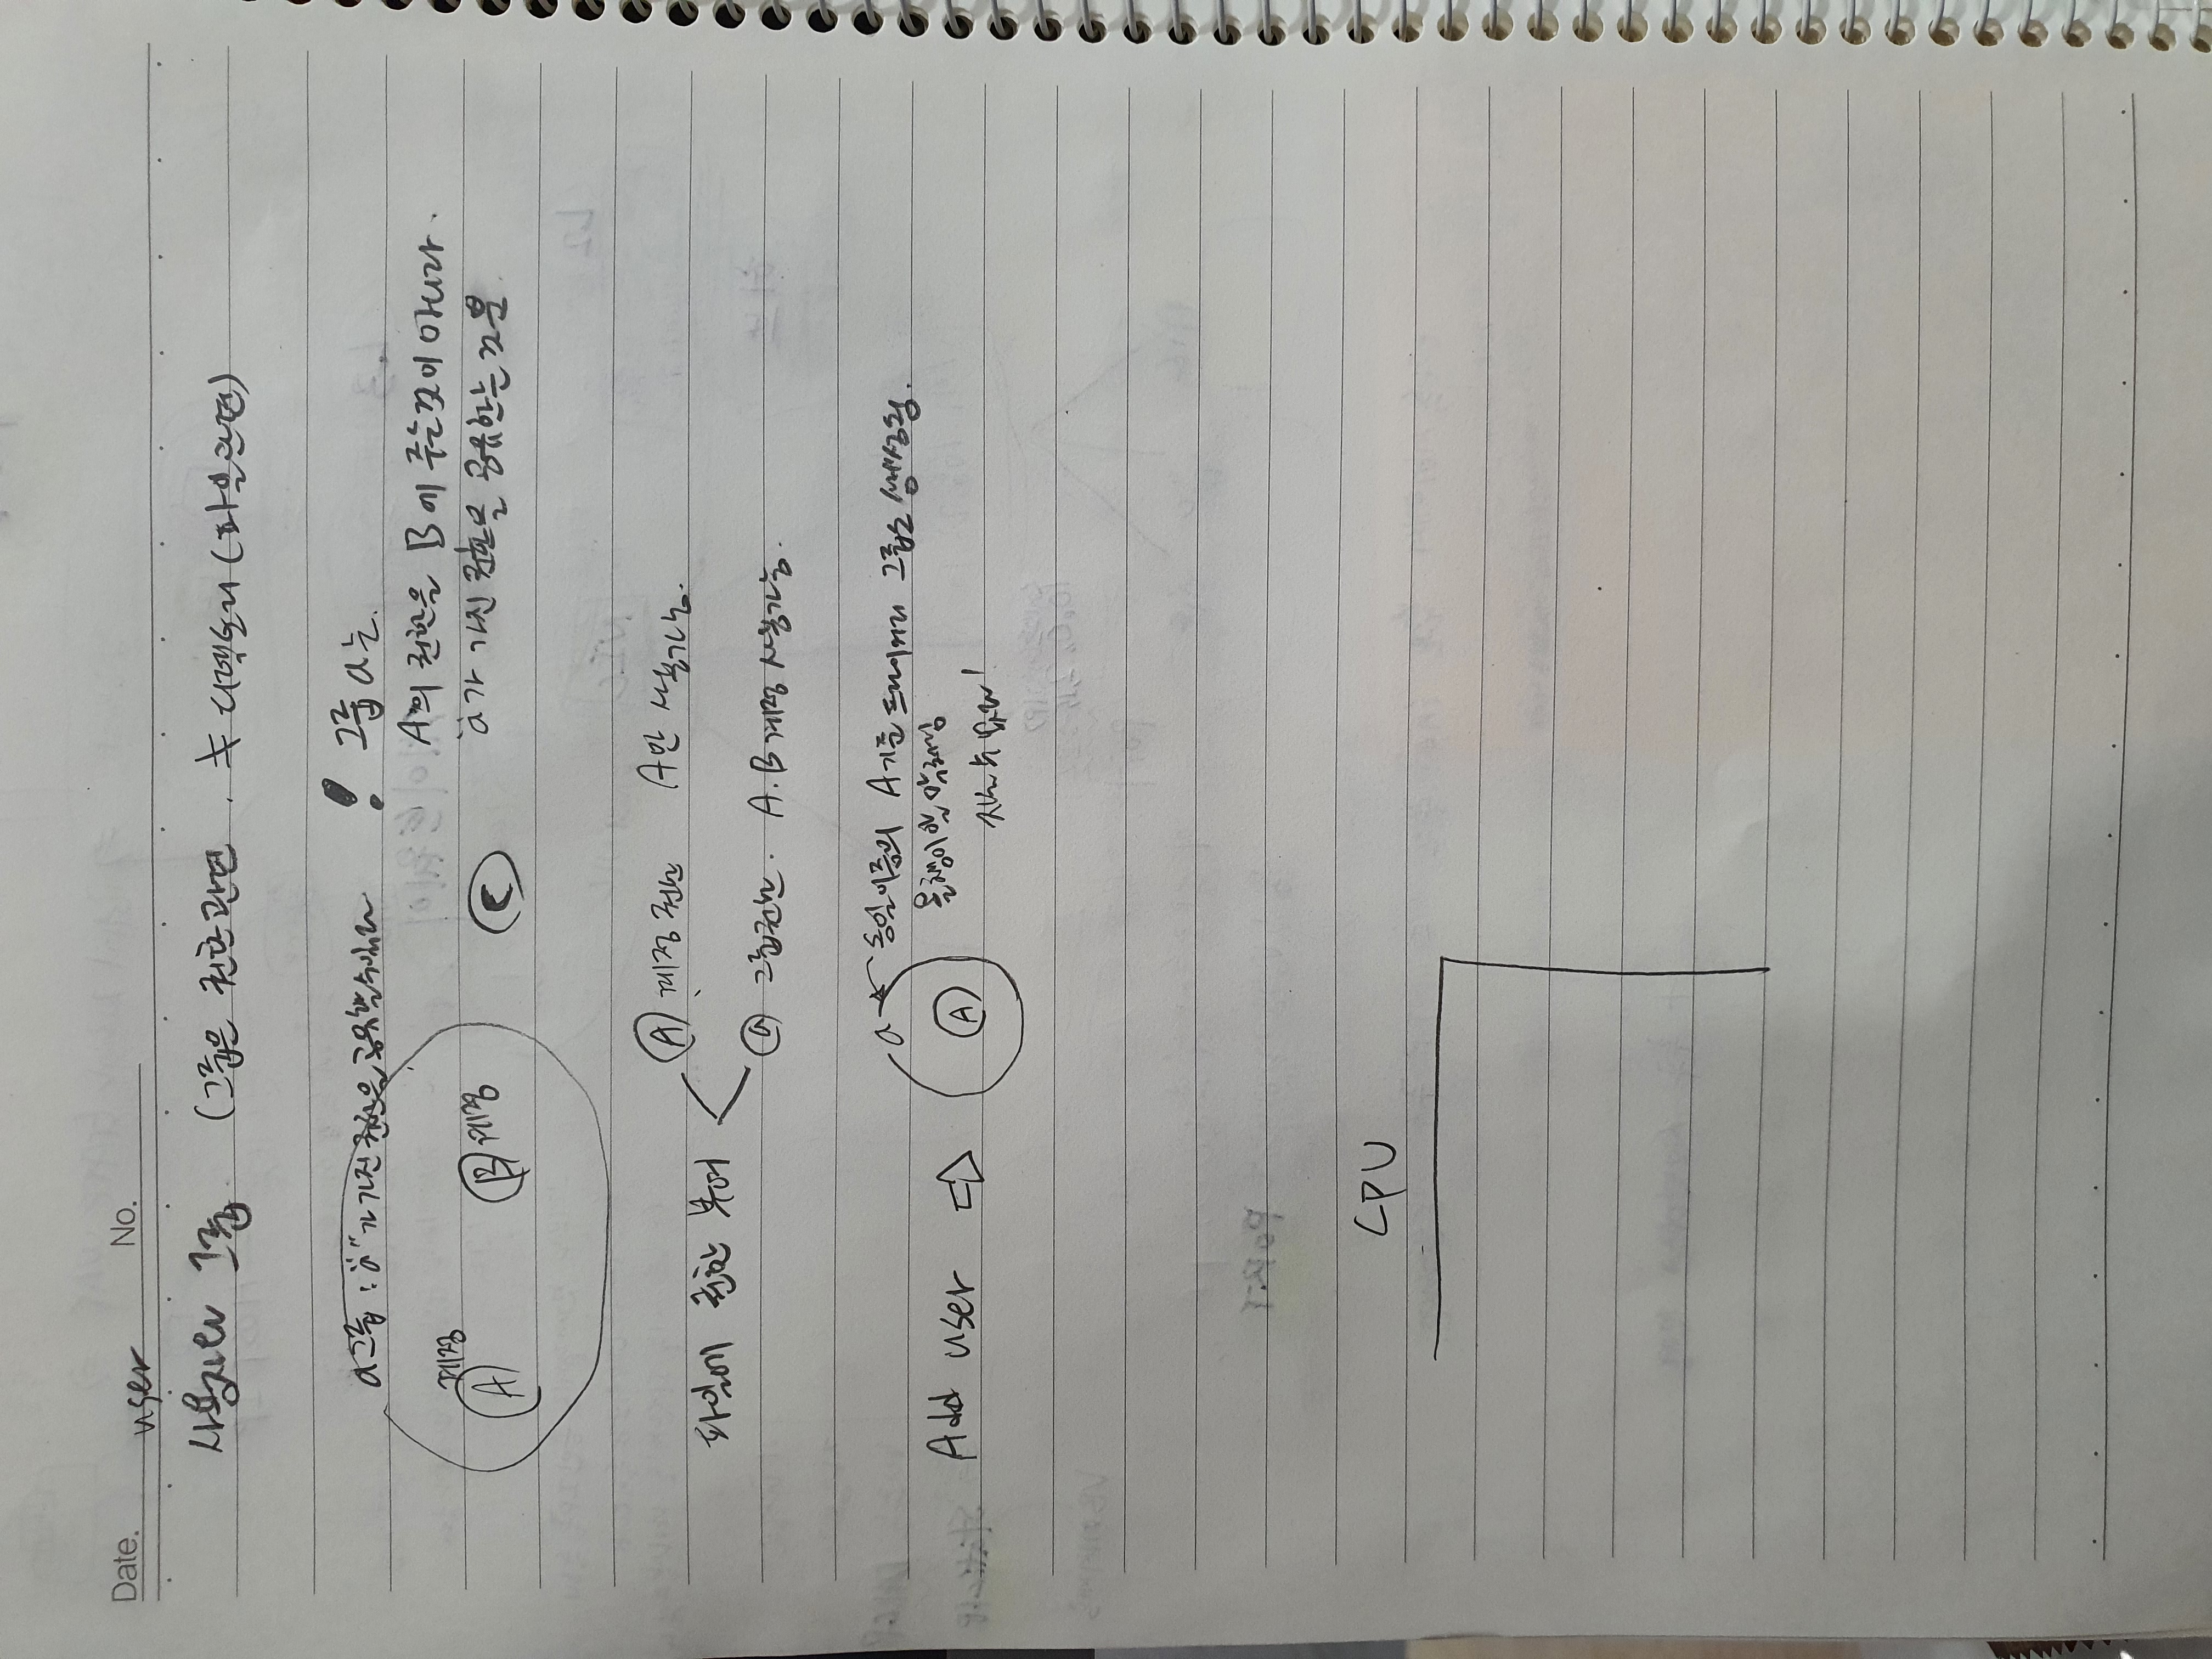 Date. No.
user
사용자와 그룹 (그룹은 권한관련. ≠ 디렉토리(파일관련)
a그룹 : "a"가 가진 권한을 공유할수있다
! 그룹 a는.
A의 권한을 B에 주는것이 아니라.
a가 가진 권한을 공유하는 것임.
계정
Ⓐ Ⓑ계정 Ⓒ
파일에 권한 부여 < Ⓐ 계정 권한 A만 사용가능.
ⓐ 그룹권한. A.B계정 사용가능.
Add user ⇨ Ⓐ
a ← 동일이름의 A기준 그룹도 생성됨.
CPU